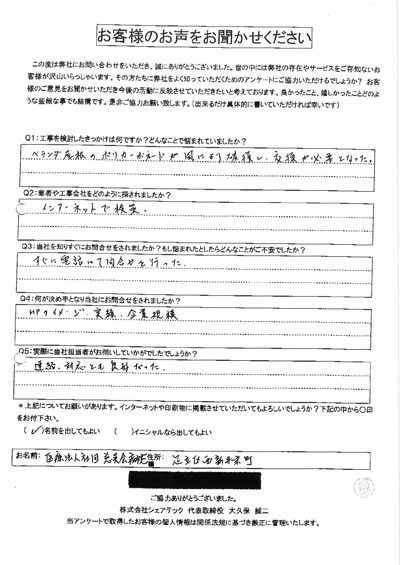 お客様のお声をお聞かせください
この度は弊社にお問い合わせをいただき、誠にありがとうございました。世の中には弊社の存在やサービスをご存知ないお
客様が沢山いらっしゃいます。その方たちに弊社をよく知っていただくためのアンケートにご協力いただけるでしょうか？お客
様のご意見をお聞かせいただき今後の活動に反映させていただきたいと考えております。良かったこと、嬉しかったことどのよ
うな些細な事でも結構です。是非ご協力お願い致します。（出来るだけ具体的に書いていただければ幸いです）
Q1：工事を検討したきっかけは何ですか？どんなことで悩まれていましたか？
ベランダ屋根のポリカーボネートが風により破損し、交換が必要となった。
Q2：業者や工事会社をどのように探されましたか？
インターネットで検索。
Q3：当社を知りすぐにお問合せをされましたか？もし悩まれたとしたらどんなことがご不安でしたか？
すぐに電話にて問合せを行った。
Q4：何が決め手となり当社にお問合せをされましたか？
HPのイメージ・実績・企業規模
Q5：実際に当社担当者がお伺いしていかがでしたでしょうか？
連絡、対応とも良好だった。
＊上記についてお願いがあります。インターネットや印刷物に掲載させていただいてもよろしいでしょうか？下記の中から〇印
をお付下さい。
（✓）名前を出してもよい （ ）イニシャルなら出してもよい
お名前： 医療法人社団 病院 住所： 足立区西新井栄町
ご協力ありがとうございました。
株式会社シェアテック 代表取締役 大久保 誠二
当アンケートで取得したお客様の個人情報は関係法規に基づき厳正に管理いたします。